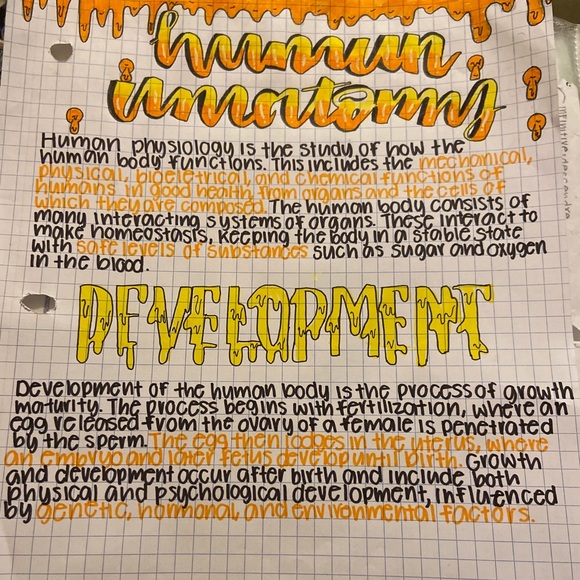 human
anatomy
Human physiology is the study of how the
human body functions. This includes the mechanical,
physical, bioeletrical, and chemical functions of
humans in good health, from organs and the cells of
which they are composed. The human body consists of
many interacting systems of organs. These interact to
make homeostasis, keeping the body in a stable state
with safe levels of substances such as sugar and oxygen
in the blood.
DEVELOPMENT
Development of the human body is the process of growth
maturity. The process begins with fertilization, where an
egg released from the ovary of a female is penetrated
by the sperm. The egg then lodges in the uterus, where
an embryo and later fetus develop until birth. Growth
and development occur after birth and include both
physical and psychological development, influenced
by genetic, hormonal, and environmental factors.